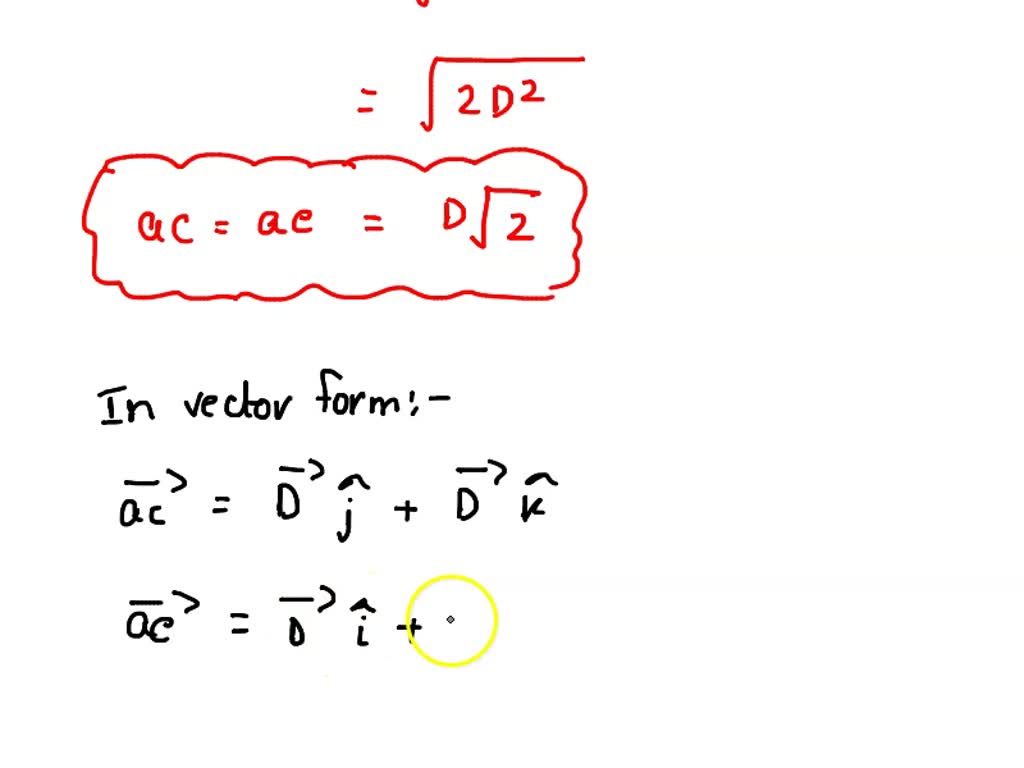 = √2D²
ac = ae = D√2
In vector form:-
ac⃗ = D⃗ ĵ + D⃗ k̂
ae⃗ = D⃗ î +